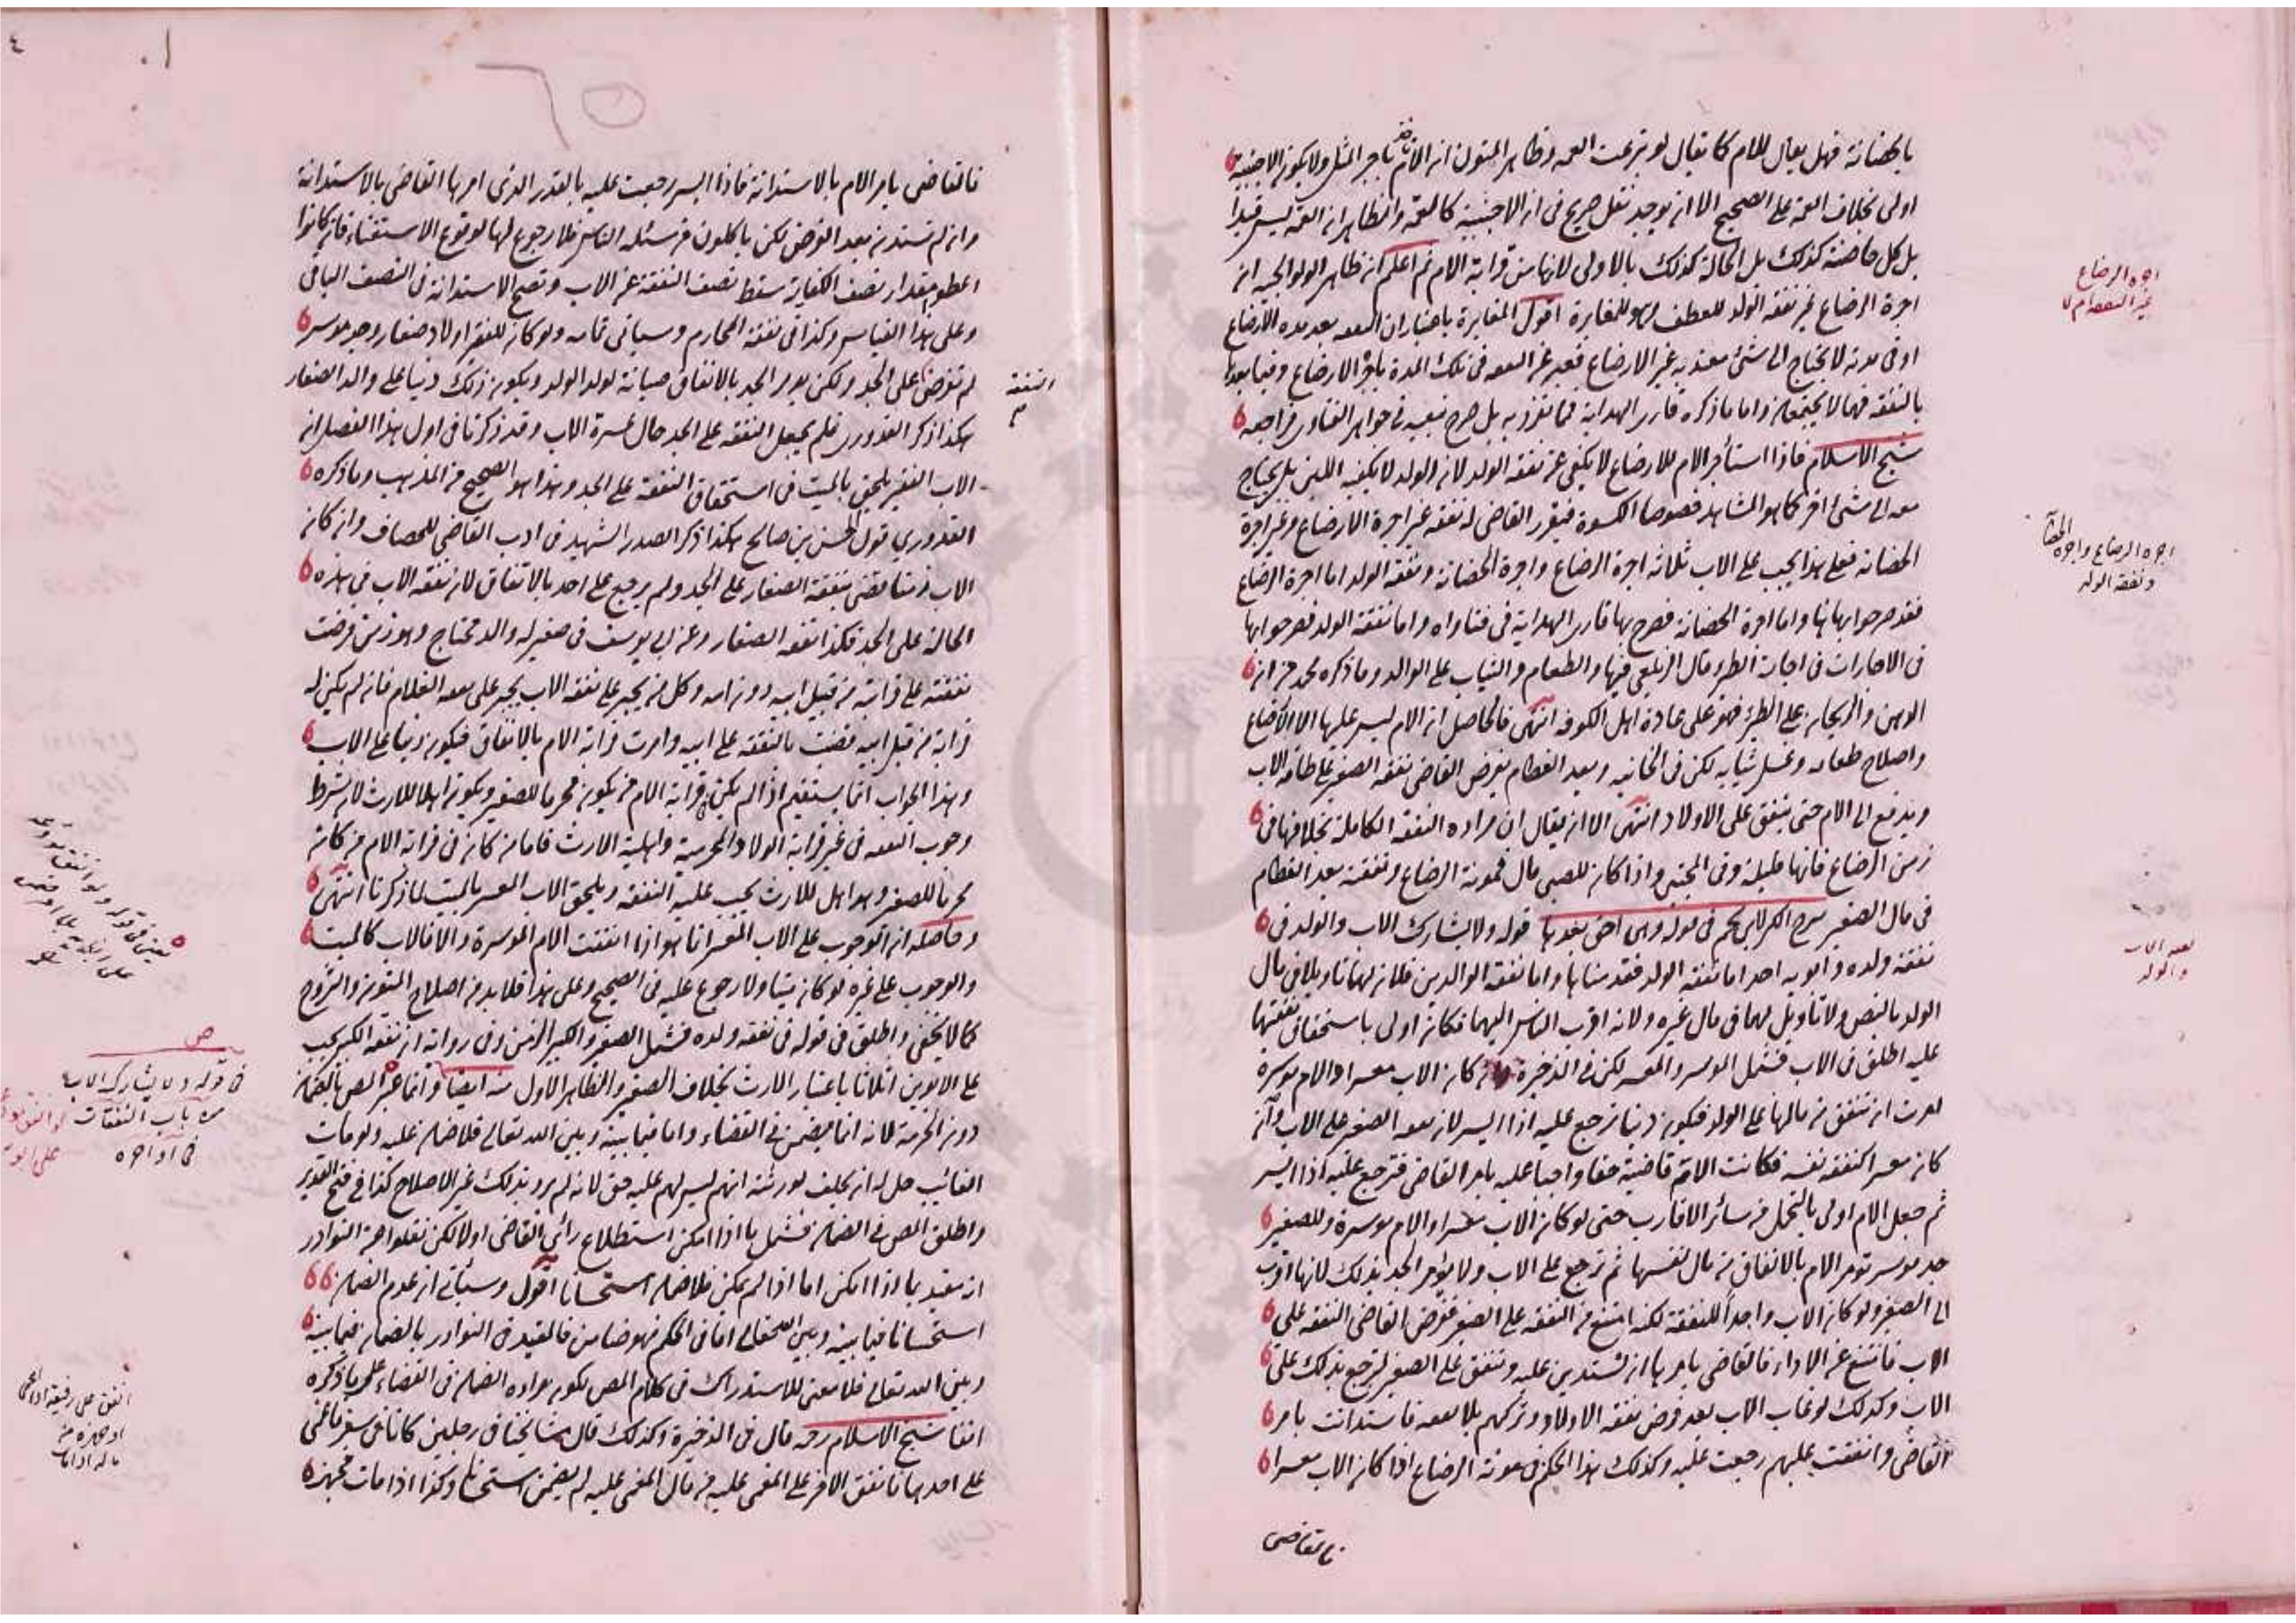 بالحضانة فهل يقال للام كما يقال لو تبرعت العمة وظاهر المتون ان الام تاخذ باجر المثل ولا يكون الاجنبية
اولى بخلاف العمة على الصحيح الا ان يوجد نقل صريح في ان الاجنبية كالعمة والظاهر ان العمة ليس قيدا
بل كل حاضنة كذلك بل الخالة كذلك بالاولى لانها من قرابة الام ثم اعلم ان ظاهر الولوالجية ان
اجرة الرضاع غير نفقة الولد للعطف وهو للمغايرة اقول المغايرة باعتبار ان النفقة بعد مدة الارضاع
او في مدته لا يحتاج الى شئ معتد به غير الارضاع فعبر عن النفقة في تلك المدة باجر الارضاع وفيما بعدها
بالنفقة فهما لا يجتمعان واما ما ذكره قارى الهداية فما تفرد به بل صرح بتعينه في جواهر الفتاوى فراجعه
شيخ الاسلام فاذا استأجر الام للارضاع لا يكفي عن نفقة الولد لان الولد لا يكفيه اللبن بل يحتاج
معه الى شئ اخر كما هو المشاهد خصوصا الكسوة فيقرر القاضي له نفقة غير اجرة الارضاع وغير اجرة
الحضانة فعلى هذا يجب على الاب ثلاثة اجرة الرضاع واجرة الحضانة ونفقة الولد اما اجرة الرضاع
فقد صرحوا بها هنا واما اجرة الحضانة فصرح بها قارى الهداية في فتاواه واما نفقة الولد فصرحوا بها
في الاجارات في اجارة الظئر قال الزيلعي فيها والطعام والثياب على الوالد وما ذكره محمد من ان
الدهن والريحان على الظئر فهو على عادة اهل الكوفة انتهى فالحاصل ان الام ليس عليها الا الارضاع
واصلاح طعامه وغسل ثيابه لكن في الخانية وبعد الفطام يفرض القاضي نفقة الصغير على طاقة الاب
ويدفع الى الام حتى ينفق على الاولاد انتهى الا ان يقال ان مراده النفقة الكاملة بخلافها في
زمن الرضاع فانها قليلة وفي المجتبى واذا كان للصبي مال فمونة الرضاع ونفقته بعد الفطام
في مال الصغير شرح الكنز لابن نجيم في قوله وهي احق بعدها قوله ولا يشارك الاب والولد في
نفقة ولده وابويه احد اما نفقة الولد فقد بيناها واما نفقة الوالدين فلان لهما تاويلا في مال
الولد بالنص ولا تاويل لهما في مال غيره ولانه اقرب الناس اليهما فكان اولى باستحقاق نفقتهما
عليه اطلق في الاب فشمل الموسر والمعسر لكن في الذخيرة كان الاب معسرا والام موسرة
امرت ان تنفق من مالها على الولد فيكون دينا ترجع عليه اذا ايسر لان نفقة الصغير على الاب وان
كان معسرا كنفقة نفسه فكانت الام قاضية حقا واجبا عليه بامر القاضي فترجع عليه اذا ايسر
ثم جعل الام اولى بالتحمل من سائر الاقارب حتى لو كان الاب معسرا والام موسرة وللصغير
جد موسر تومر الام بالانفاق من مال نفسها ثم ترجع على الاب ولا يؤمر الجد بذلك لانها اقرب
الى الصغير ولو كان الاب واجدا للنفقة لكنه امتنع من النفقة على الصغير ففرض القاضي النفقة على
الاب فامتنع عن الاداء فالقاضي يامرها ان تستدين عليه وتنفق على الصغير لترجع بذلك على
الاب وكذلك لو غاب الاب بعد فرض نفقة الاولاد وتركهم بلا نفقة فاستدانت بامر
القاضي وانفقت عليهم رجعت عليه وكذلك هذا الحكم في مونة الرضاع اذا كان الاب معسرا
فالقاضي
اجرة الرضاع
غير النفقة ام لا
اجرة الرضاع واجرة الحضانة
ونفقة الولد
نفقة الاب
والولد
فالقاضي يامر الام بالاستدانة فاذا ايسر رجعت عليه بالقدر الذي امرها القاضي بالاستدانة
وان لم تستدنه بعد الفرض لكن ياكلون من مسئلة الناس فلا رجوع لها لوقوع الاستغناء فان كانوا
اعطوا مقدار نصف الكفاية سقط نصف النفقة عن الاب وتصح الاستدانة في النصف الباقي
وعلى هذا القياس وكذا في نفقة المحارم وسياتي تمامه ولو كان للفقير اولاد صغار وجد موسر
لم تفرض على الجد ولكن يومر الجد بالانفاق صيانة لولد الولد ويكون ذلك دينا على والد الصغار
هكذا ذكر القدوري فلم يجعل النفقة على الجد حال عسرة الاب وقد ذكرنا في اول هذا الفصل ان
الاب الفقير يلحق بالميت في استحقاق النفقة على الجد وهذا هو الصحيح من المذهب وما ذكره
القدوري قول الحسن بن صالح هكذا ذكر الصدر الشهيد في ادب القاضي للخصاف وان كان
الاب زمنا يقضى بنفقة الصغار على الجد ولم يرجع على احد بالاتفاق لان نفقة الاب في هذه
الحالة على الجد فكذا نفقة الصغار وعن ابي يوسف في صغير له والد محتاج وهو زمن فرضت
نفقته على قرابته من قبل ابيه دون امه وكل من يجبر على نفقة الاب يجبر على نفقة الغلام فان لم يكن له
قرابة من قبل ابيه قضيت بالنفقة على ابيه وامرت قرابة الام بالانفاق فيكون دينا على الاب
وهذا الجواب انما يستقيم اذا لم يكن في قرابة الام من يكون محرما للصغير ويكون اهلا للارث لان شرط
وجوب النفقة في غير قرابة الولاد المحرمية واهلية الارث فاما من كان في قرابة الام من كان
محرما للصغير وهو اهل للارث يجب عليه النفقة ويلحق الاب المعسر بالميت لما ذكرنا انتهى
وحاصله ان الوجوب على الاب المعسر انما هو اذا انفقت الام الموسرة والا فالاب كالميت
والوجوب على غيره لو كان ميتا ولا رجوع عليه في الصحيح وعلى هذا فلا بد من اصلاح المتون والشروح
كما لا يخفى واطلق في قوله في نفقة ولده فشمل الصغير والكبير الزمن وفي رواية ان نفقة الكبير تجب
على الابوين اثلاثا باعتبار الارث بخلاف الصغير والظاهر الاول منه ايضا وانما عبر المص بالضمان
دون الحرمة لانه انما يضمن في القضاء واما فيما بينه وبين الله تعالى فلا ضمان عليه ولو مات
الغائب حل له ان يحلف لورثته انهم ليس لهم عليه حق لانه لم يرد بذلك غير الاصلاح كذا في فتح القدير
واطلق المص في الضمان فشمل ما اذا امكن استطلاع رأي القاضي اولا لكن نقلوا عن النوادر
انه مقيد بما اذا امكن اما اذا لم يمكن فلا ضمان استحسانا اقول وسيأتي ان عدم الضمان
استحسانا فيما بينه وبين الله تعالى اما في الحكم فهو ضامن فالقيد في النوادر بالضمان فيما بينه
وبين الله تعالى فلا معنى للاستدراك في كلام المص لكون مراده الضمان في القضاء على ما ذكره
انفا شيخ الاسلام رحه قال في الذخيرة وكذلك قال مشايخنا في رجلين كانا في سفر فاغمى
على احدهما فانفق الاخر على المغمى عليه من مال المغمى عليه لم يضمن استحسانا وكذا اذا مات فجهزه
النفقة
م
ص
في قوله ولا يشارك الاب
من باب النفقات
في اواخره
انفق على رفيقه اذا اغمي
او جهزه من
ماله اذا مات